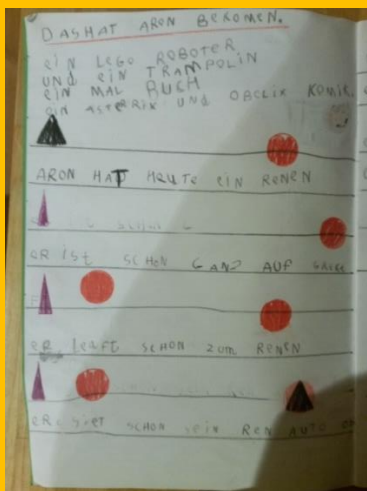 DASHAT ARON BEKOMEN.
EIN LEGO ROBOTER
UND EIN TRAMPOLIN
EIN MAL BUCH
EIN ASTERIX UND OBELIX KOMIK.
ARON HAT HEUTE EIN RENEN
ER IST SCHON GANZ AUF
ER LEAFT SCHON ZUM RENEN
ER SIET SCHON SEIN REN AUTO